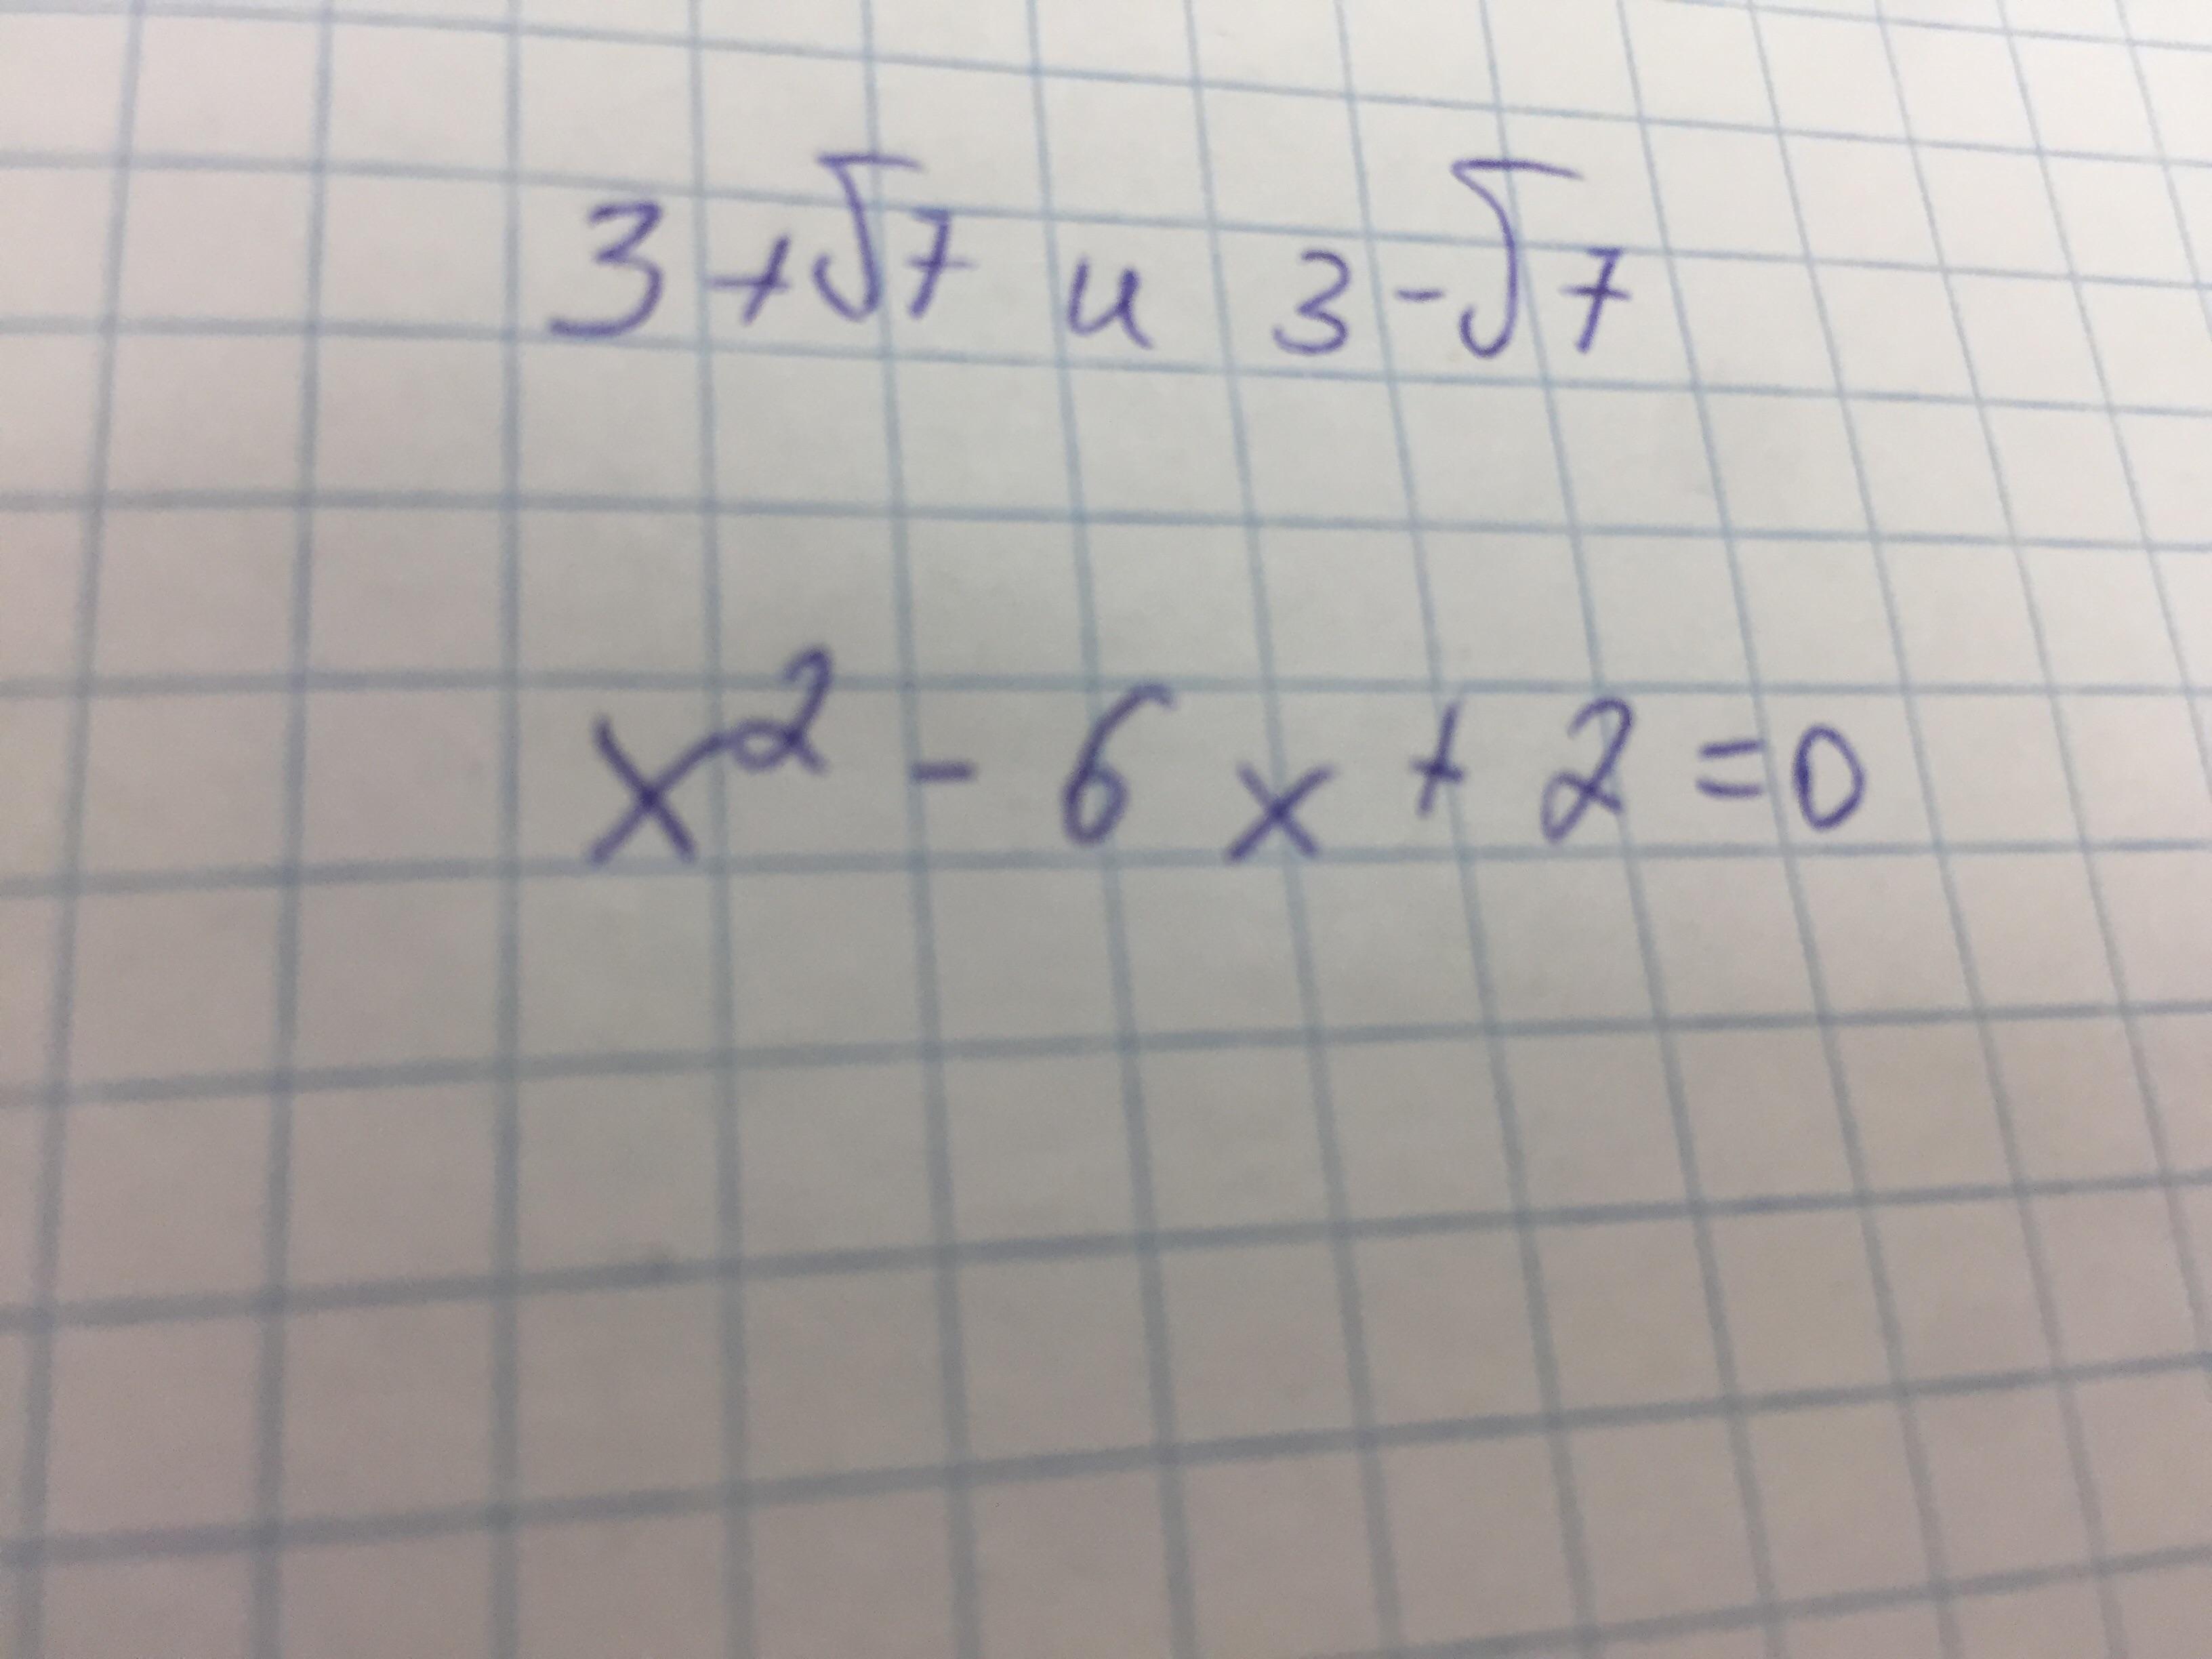 3+√7 и 3-√7
x² - 6x + 2 = 0